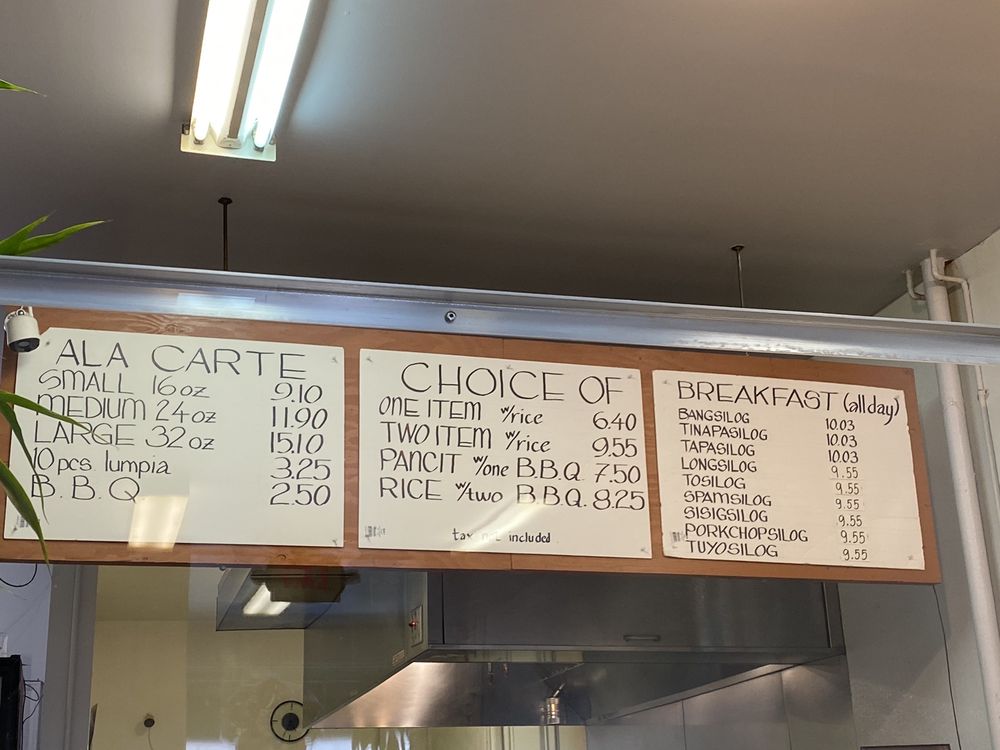 ALA CARTE
SMALL 16oz 9.10
MEDIUM 24oz 11.90
LARGE 32oz 15.10
10pcs lumpia 3.25
B.B.Q 2.50
CHOICE OF
ONE ITEM w/rice 6.40
TWO ITEM w/rice 9.55
PANCIT w/one B.B.Q 7.50
RICE w/two B.B.Q. 8.25
tax not included
BREAKFAST (all day)
BANGSILOG 10.03
TINAPASILOG 10.03
TAPASILOG 10.03
LONGSILOG 9.55
TOSILOG 9.55
SPAMSILOG 9.55
SISIGSILOG 9.55
PORKCHOPSILOG 9.55
TUYOSILOG 9.55